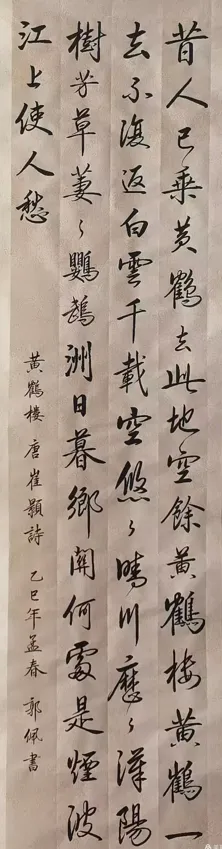 昔人已乘黄鹤去此地空餘黄鶴楼黄鶴一
去不復返白雲千載空悠々晴川歷々漢陽
樹芳草萋々鸚鵡洲日暮鄉関何處是煙波
江上使人愁
黄鶴楼唐崔顥詩 乙巳年孟春 郭佩書